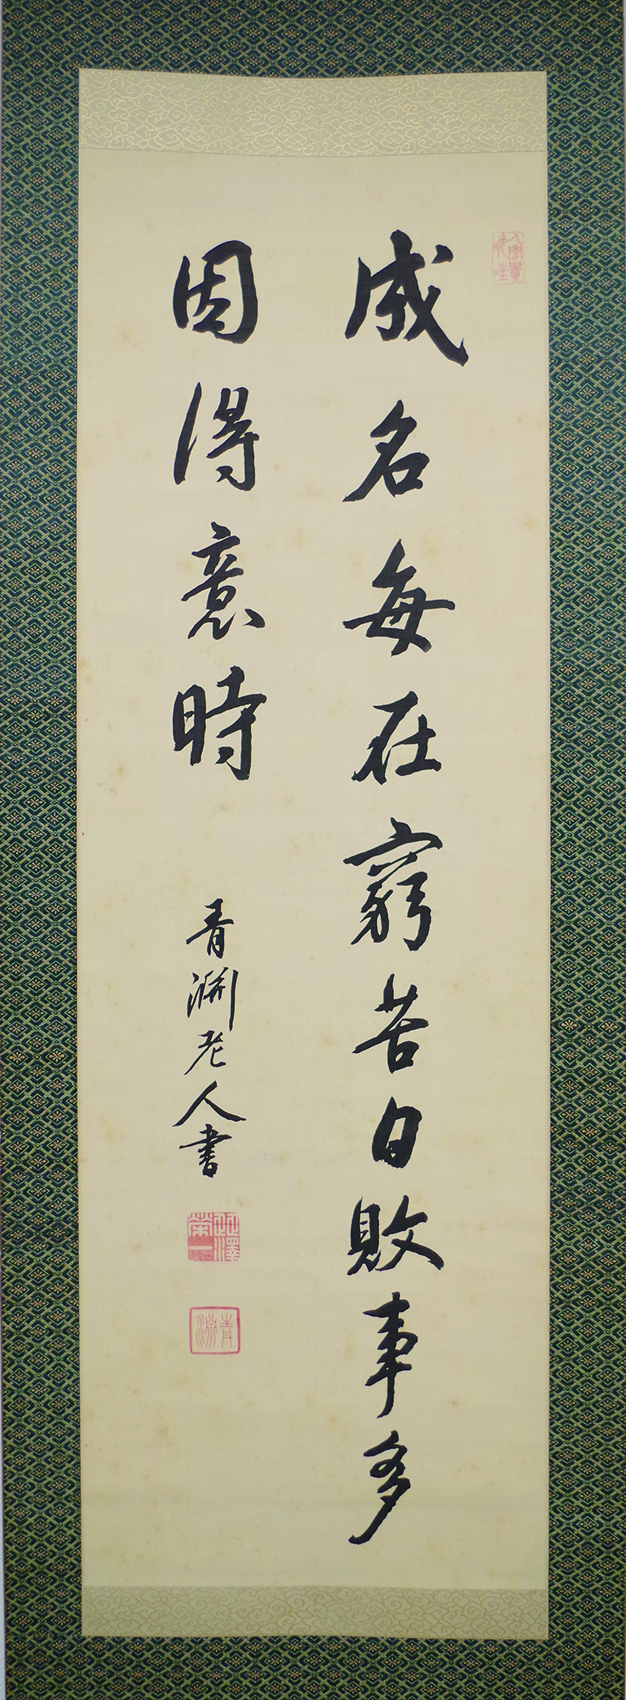 成名毎在窮苦日敗事多
因得意時
青淵老人書
澁澤榮一
青淵